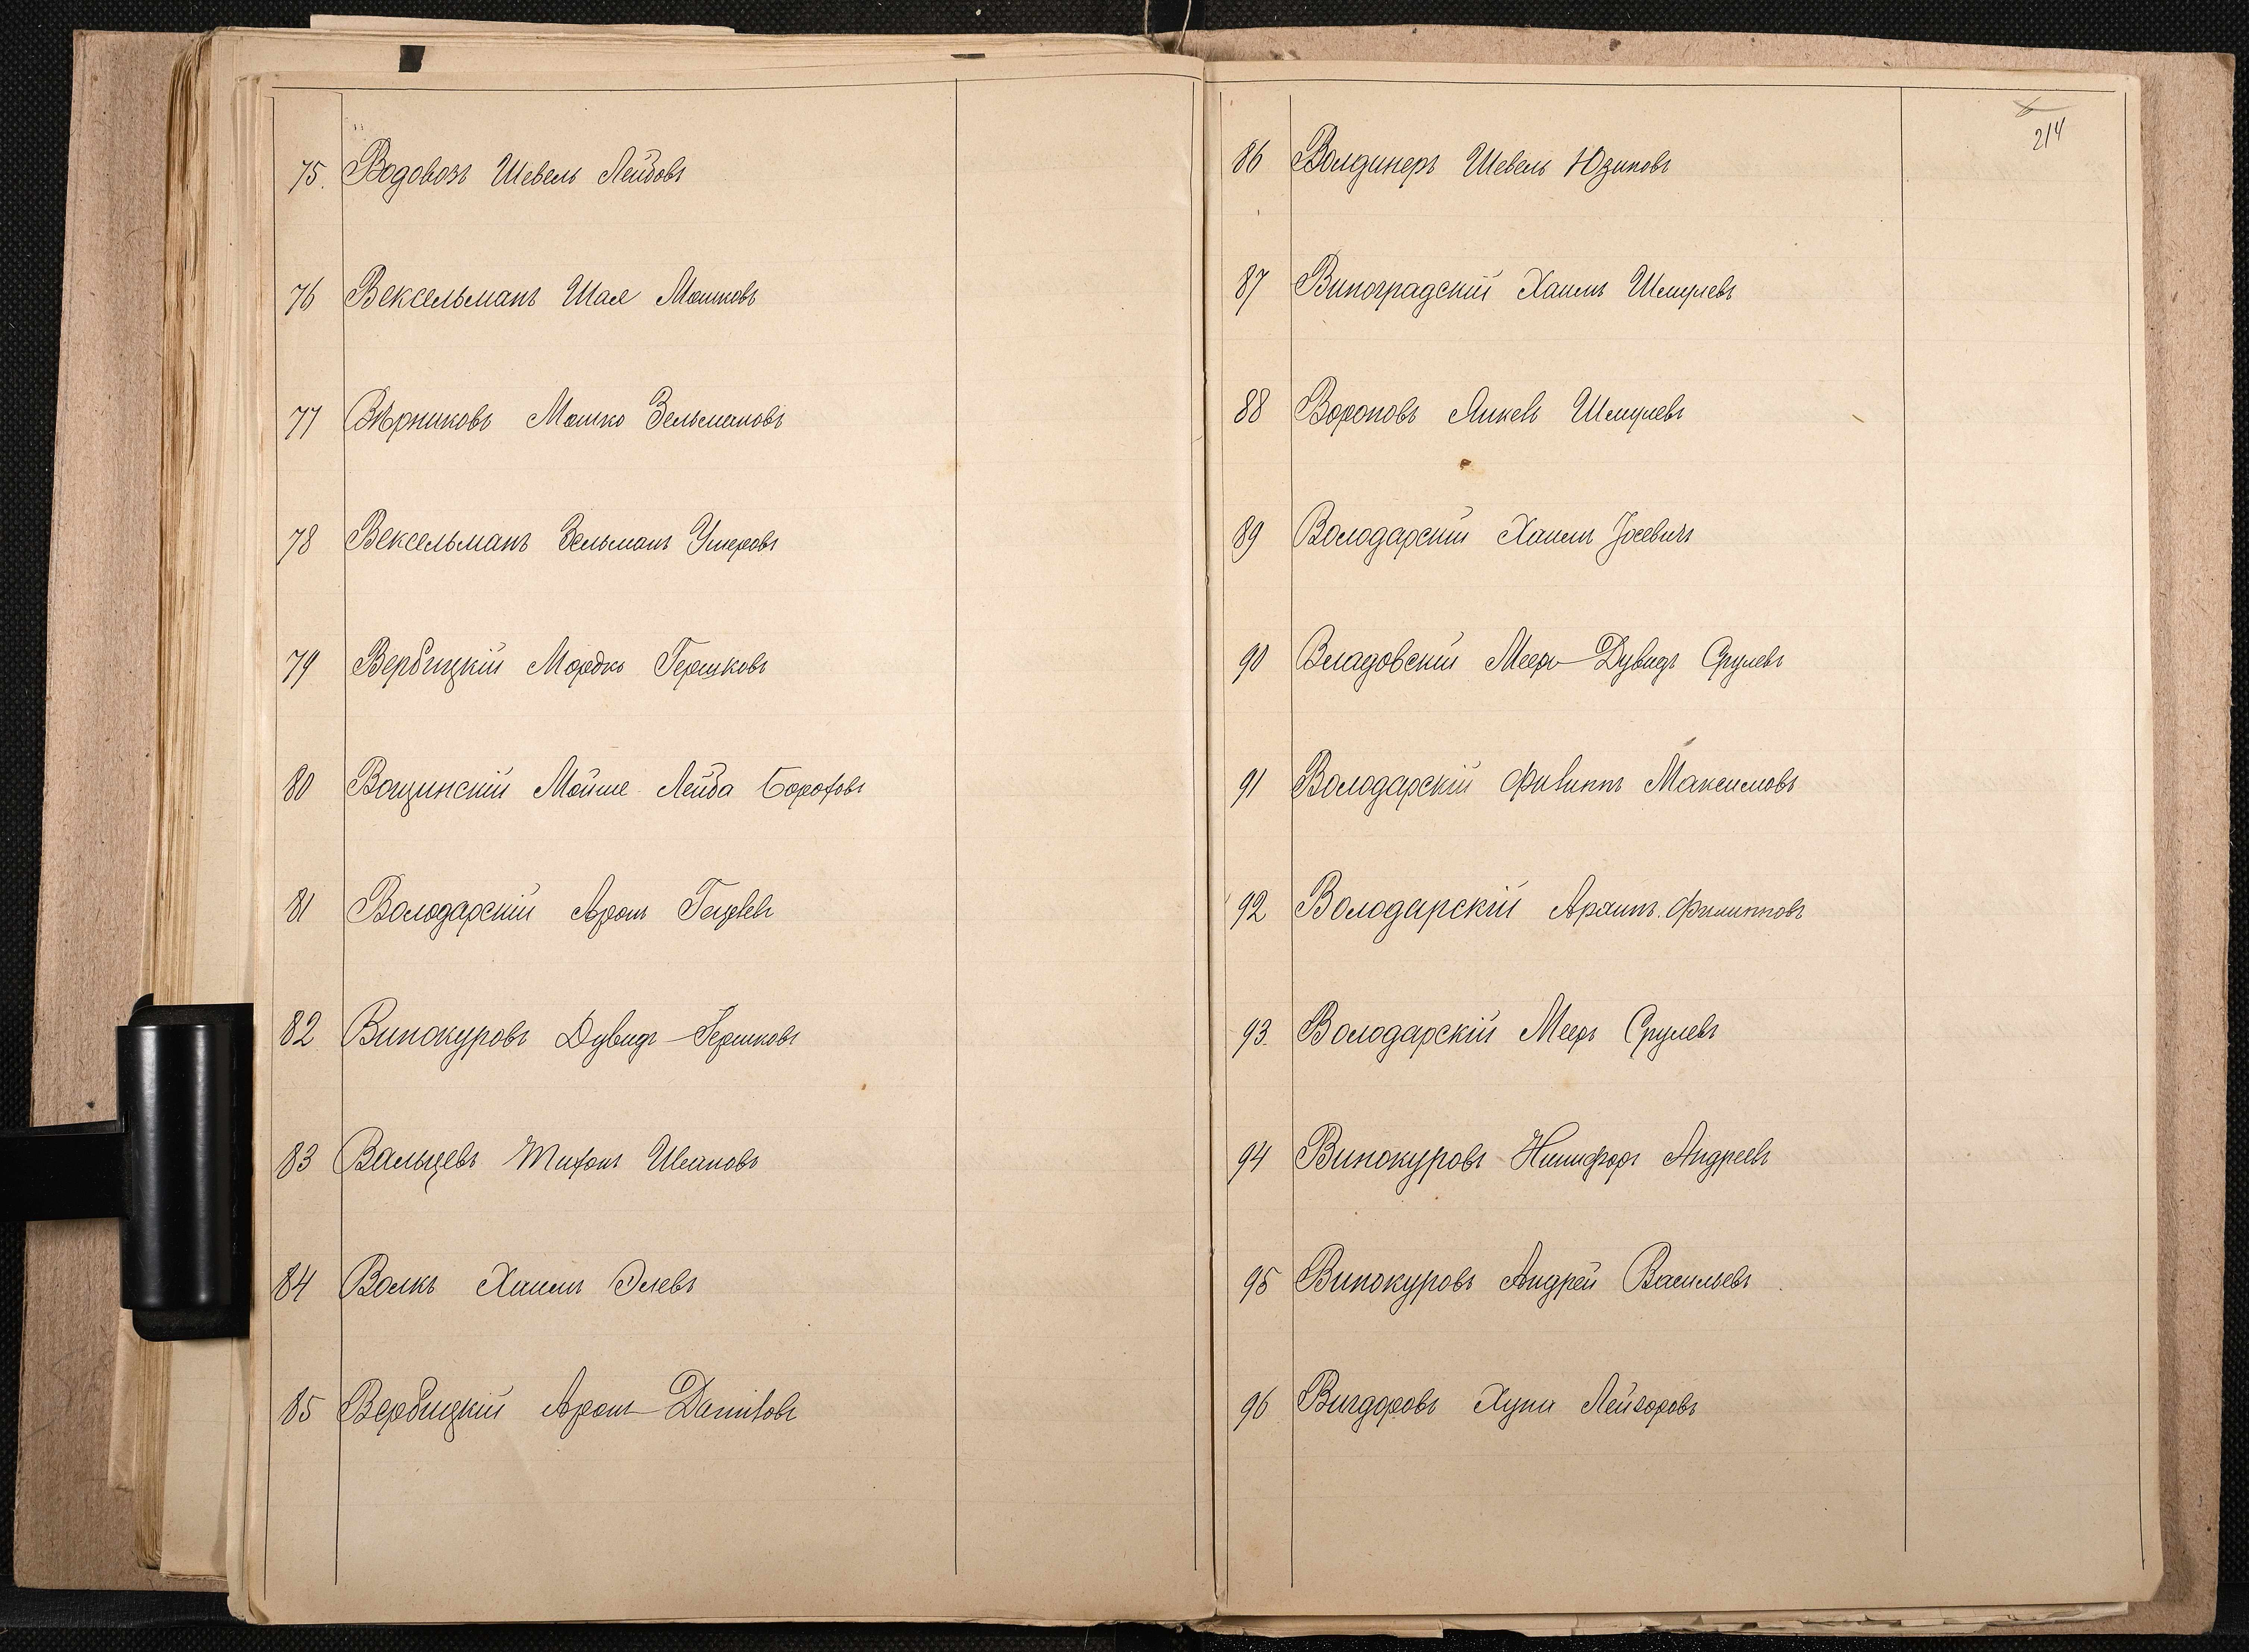 75. Водовозъ Шевель Лейбовъ
76 Вексельманъ Шая Мошковъ
77 Вѣрниковъ Мошко Зельмановъ
78 Вексельманъ Зельманъ Ушеровъ
79 Вербицкій Мордко Гершковъ
80 Вощинскій Мойше Лейба Бороховъ
81 Володарскій Аронъ
82 Винокуровъ Дувидъ-Гершковъ
83 Вальцевъ Тихонъ Ивановъ
84 Волкъ Хаимъ Элевъ
85 Вербицкій Аронъ-Даниловъ
214
86 Волдинеръ Шевель Юзиповъ
87 Виноградскій Хаимъ Шмулевъ
88 Вороновъ Янкевъ Шмулевъ
89 Володарскій Хаимъ Іосевичъ
90 Владовскій Меер-Дувидъ Срулевъ
91 Володарскій Филиппъ Максимовъ
92 Володарскій Архипъ. Филипповъ
93. Володарскій Мееръ Срулевъ
94 Винокуровъ Никифоръ Андреевъ
95 Винокуровъ Андрей Васильевъ
96 Вигдоровъ Хуна Лейзоровъ